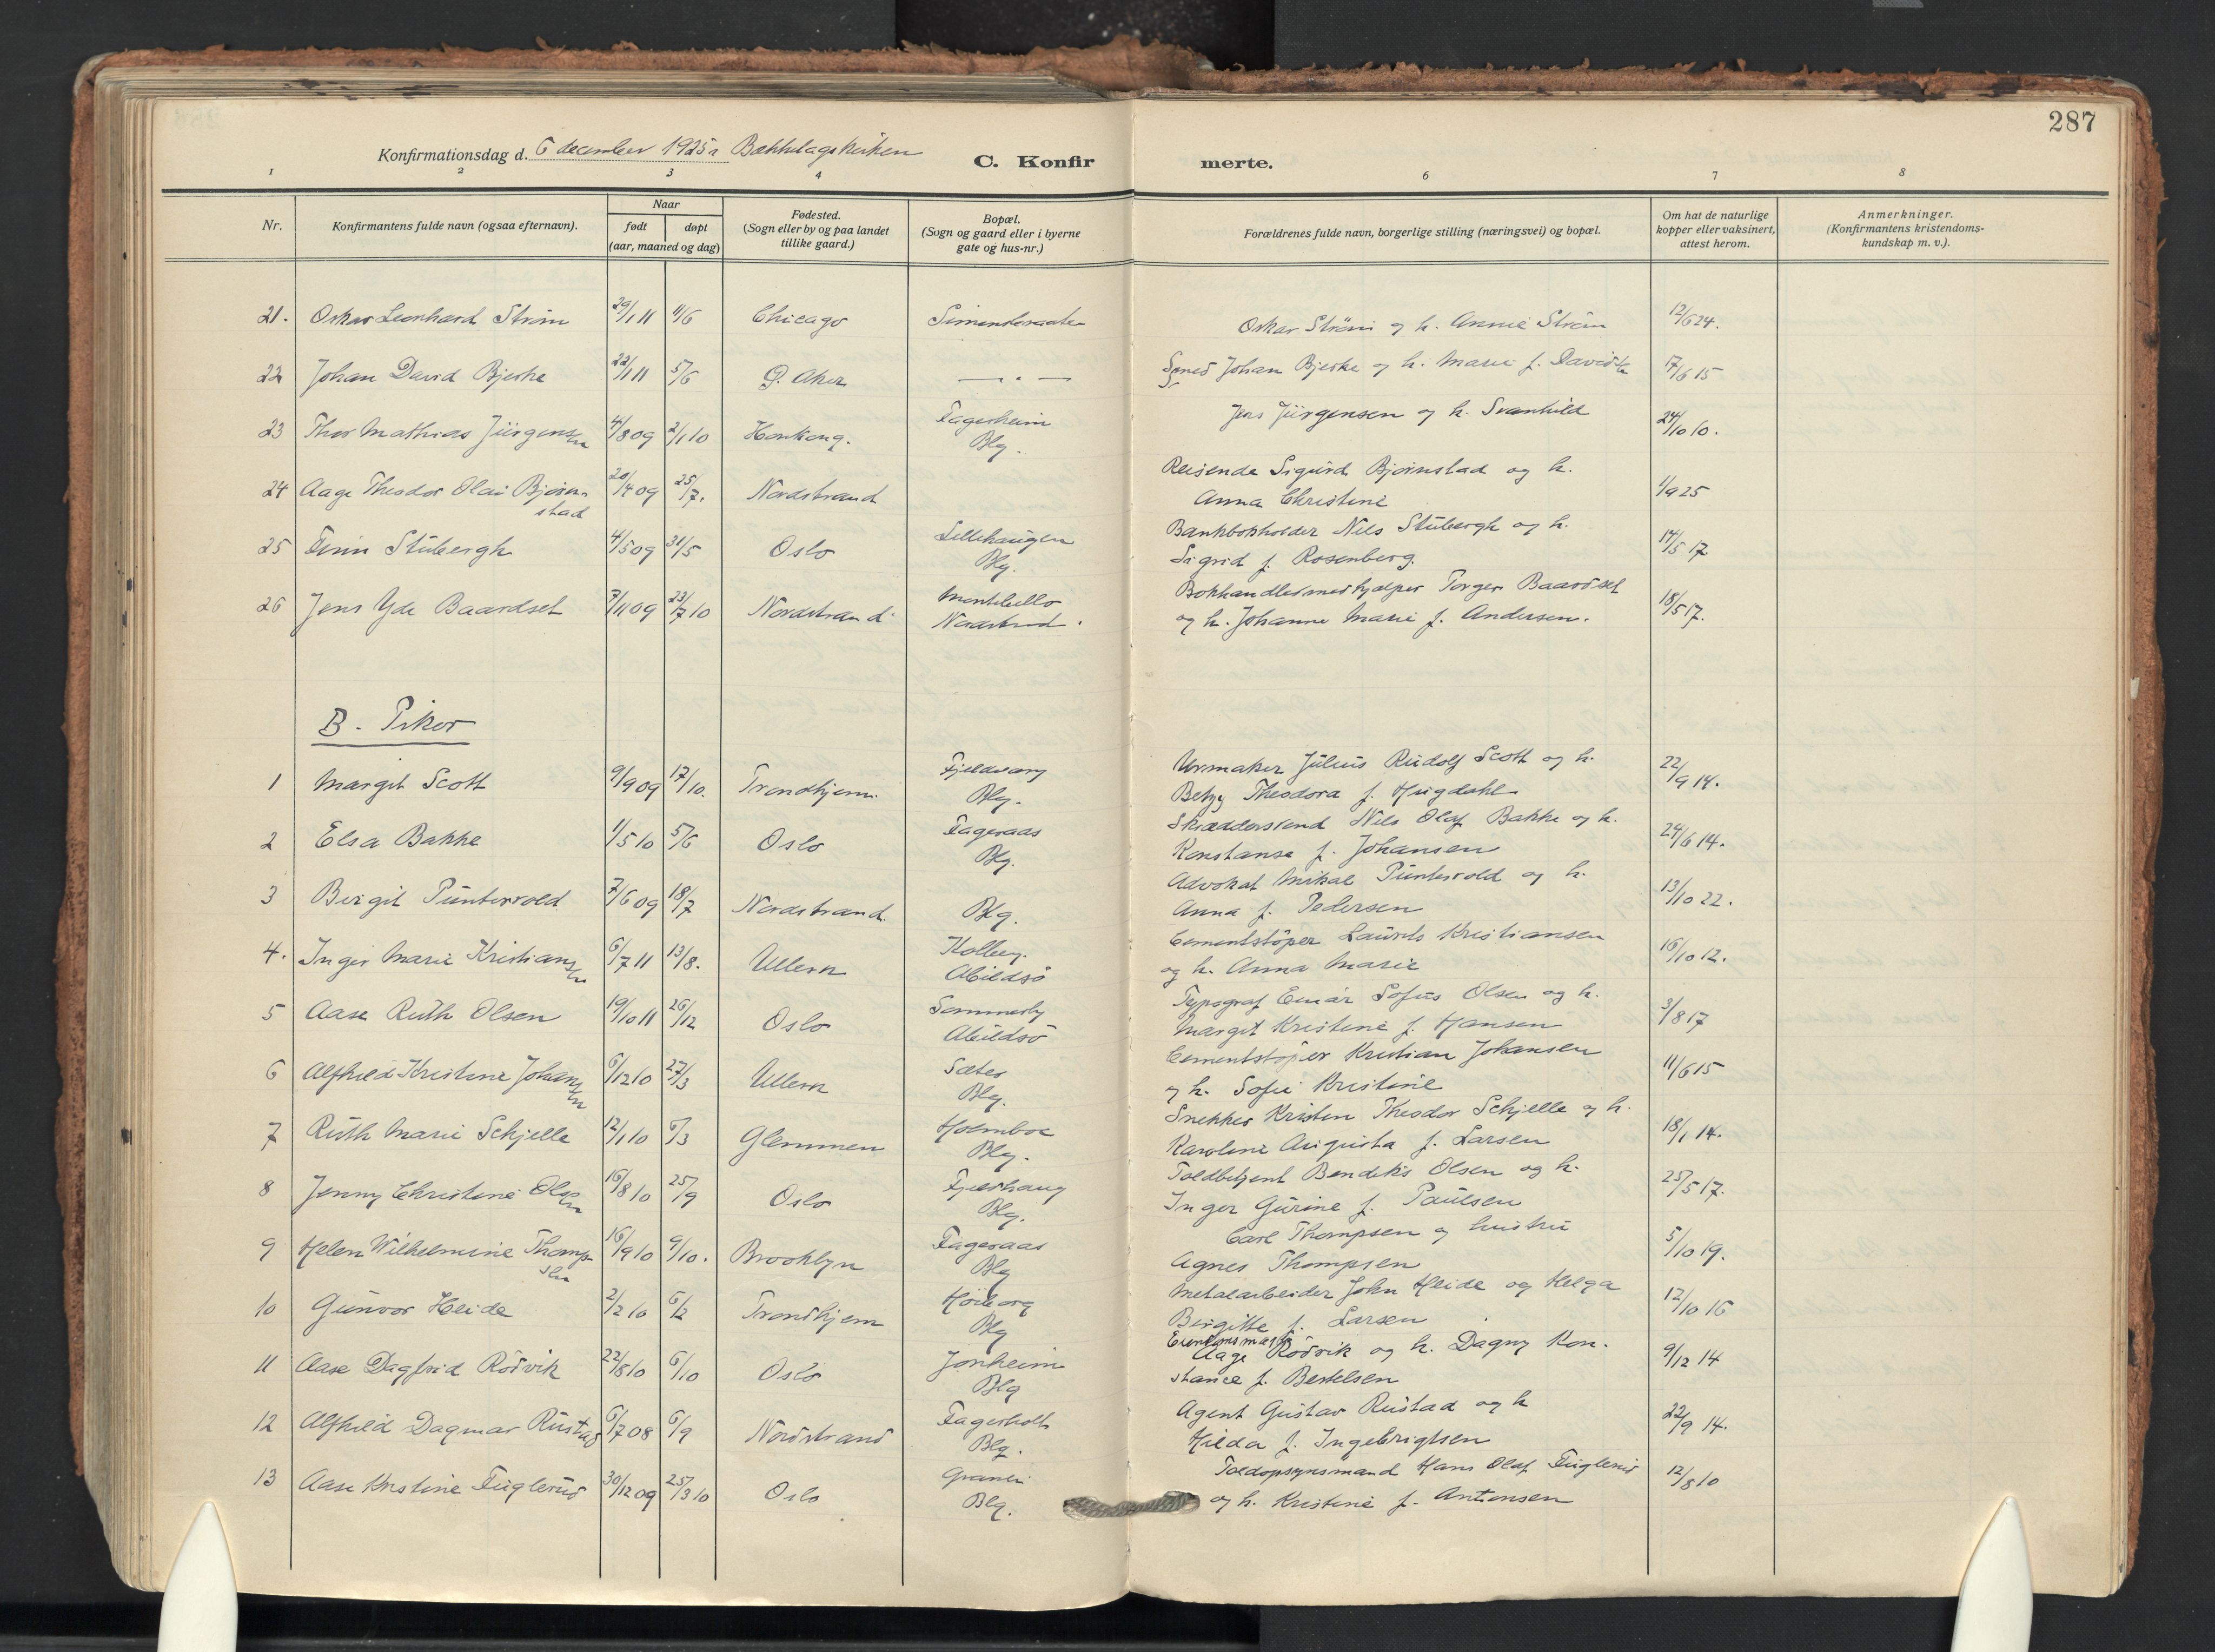 287
Konfirmationsdag d. 6 december 1925 i Bækkelagskirken C. Konfirmerte.
1 2 3 4 6 7 8
Nr. Konfirmantens fulde navn (ogsaa efternavn). Naar født døpt (aar, maaned og dag) Fødested. (Sogn eller by og paa landet tillike gaard.) Bopæl. (Sogn og gaard eller i byerne gate og hus-nr.) Forældrenes fulde navn, borgerlige stilling (næringsvei) og bopæl. Om hat de naturlige kopper eller vaksinert, attest herom. Anmerkninger. (Konfirmantens kristendoms-kundskap m. v.).
21. Oskar Leonhard Strøm 29/1 11 11/6 Chicago Oskar Strøm og h. Annie Strøm 12/6 24.
22 Johan David Bjerke 22/1 11 5/6 G. Aker — " — Smed Johan Bjerke og h. Marie f. Davidsen 17/6 15
23 Thor Mathias Jürgensen 4/8 09 2/1 10 Honkong. Fagerheim Blg. Jens Jürgensen og h. Svanhild 24/10 10.
24 Aage Theodor Olai Bjørnstad 20/4 09 25/7. Nordstrand Reisende Sigurd Bjørnstad og h. Anna Christine 1/9 25
25 Finn Stubergh 4/5 09 31/5 Oslo Lillehaugen Blg. Bankbokholder Nils Stubergh og h. Sigrid f. Rosenberg. 14/5 17.
26 Jens Yde Baardset 7/11 09 23/7 10 Nordstrand Montebello Nordstrand. Bokhandlermedhjælper Torger Baardset og h. Johanne Marie f. Andersen. 18/5 17.
B. Piker
1 Margit Scott 9/9 09 17/10. Trondhjem. Fjeldvang Blg. Urmaker Julius Rudolf Scott og h. Betzy Theodora f. Hugdahl 22/9 14.
2 Elsa Bakke 1/5 10 5/6 Oslo Fageraas Blg. Skræddersvend Nils Olaf Bakke og h. Konstanse f. Johansen 24/6 14.
3 Birgit Puntervold 7/6 09 18/7 Nordstrand. Blg. Advokat Mikal Puntervold og h. Anna f. Pedersen 13/10 22.
4. Inger Marie Kristiansen 6/7 11 13/8. Ullern Kolberg. Abildsø Cementstøper Laurits Kristiansen og h. Anna Marie 16/10 12.
5 Aase Ruth Olsen 19/10 11 26/12 Oslo Sommerly Abildsø Typograf Einar Sofus Olsen og h. Margit Kristine f. Hansen 3/8 17
6 Alfhild Kristine Johansen 6/12 10 27/3 Ullern Sæter Blg. Cementstøper Kristian Johansen og h. Sofie Kristine 11/6 15
7 Ruth Marie Schjelle 12/1 10 6/3 Glemmen Holmboe Blg. Snekker Kristen Theodor Schjelle og h. Karoline Augusta f. Larsen 18/1 14.
8 Jenny Christine Olsen 16/8 10 25/9 Oslo Fjeldhaug Blg. Toldbetjent Bendiks Olsen og h. Inger Gurine f. Paulsen 25/5 17.
9 Helen Wilhelmine Thompsen 16/9 10 9/10. Brooklyn Fageraas Blg Carl Thompsen og hustru Agnes Thompsen 5/10 19.
10 Gunvor Heide 2/2 10 6/2 Trondhjem Høiborg Blg Metalarbeider John Heide og Helga Birgitte f. Larsen 12/10 16
11 Aase Dagfrid Rødvik 22/8 10 6/10 Oslo Jonheim Blg Aage Rødvik og h. Dagny Konstance f. Bertelsen 9/12 14
12 Alfhild Dagmar Rustad 6/7 08 6/9 Nordstrand Fagerholt Blg. Agent Gustav Rustad og h Hilda f. Ingebrigtsen 22/9 14.
13 Aase Kristine Fuglerud 30/12 09 25/3 10 Oslo Granli Blg. Toldopsynsmand Hans Olaf Fuglerud og h. Kristine f. Antonsen 12/8 10